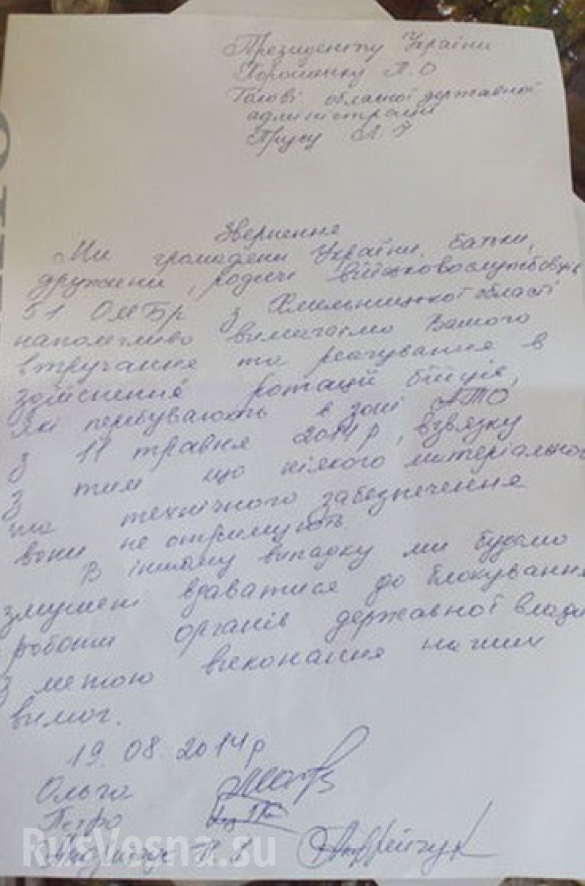 Президенту України
Порошенку П.О
Голові обласної державної
адміністрації
Прусу Л. В
Звернення
Ми громадяни України, батьки,
дружини, родичі військовослужбовців
51 ОМБр з Хмельницької області
наполегливо вимагаємо Вашого
втручання та реагування в
здійснення ротації бійців,
які перебувають в зоні АТО
з 11 травня 2014 р, взвязку
з тим що ніякого матеріального
та технічного забезпечення
вони не отримують
В іншому випадку ми будемо
змушені вдаватися до блокування
роботи органів державної влади
з метою виконання наших
вимог.
19. 08. 2014 р
Ольга
Петро
RusVesna.su